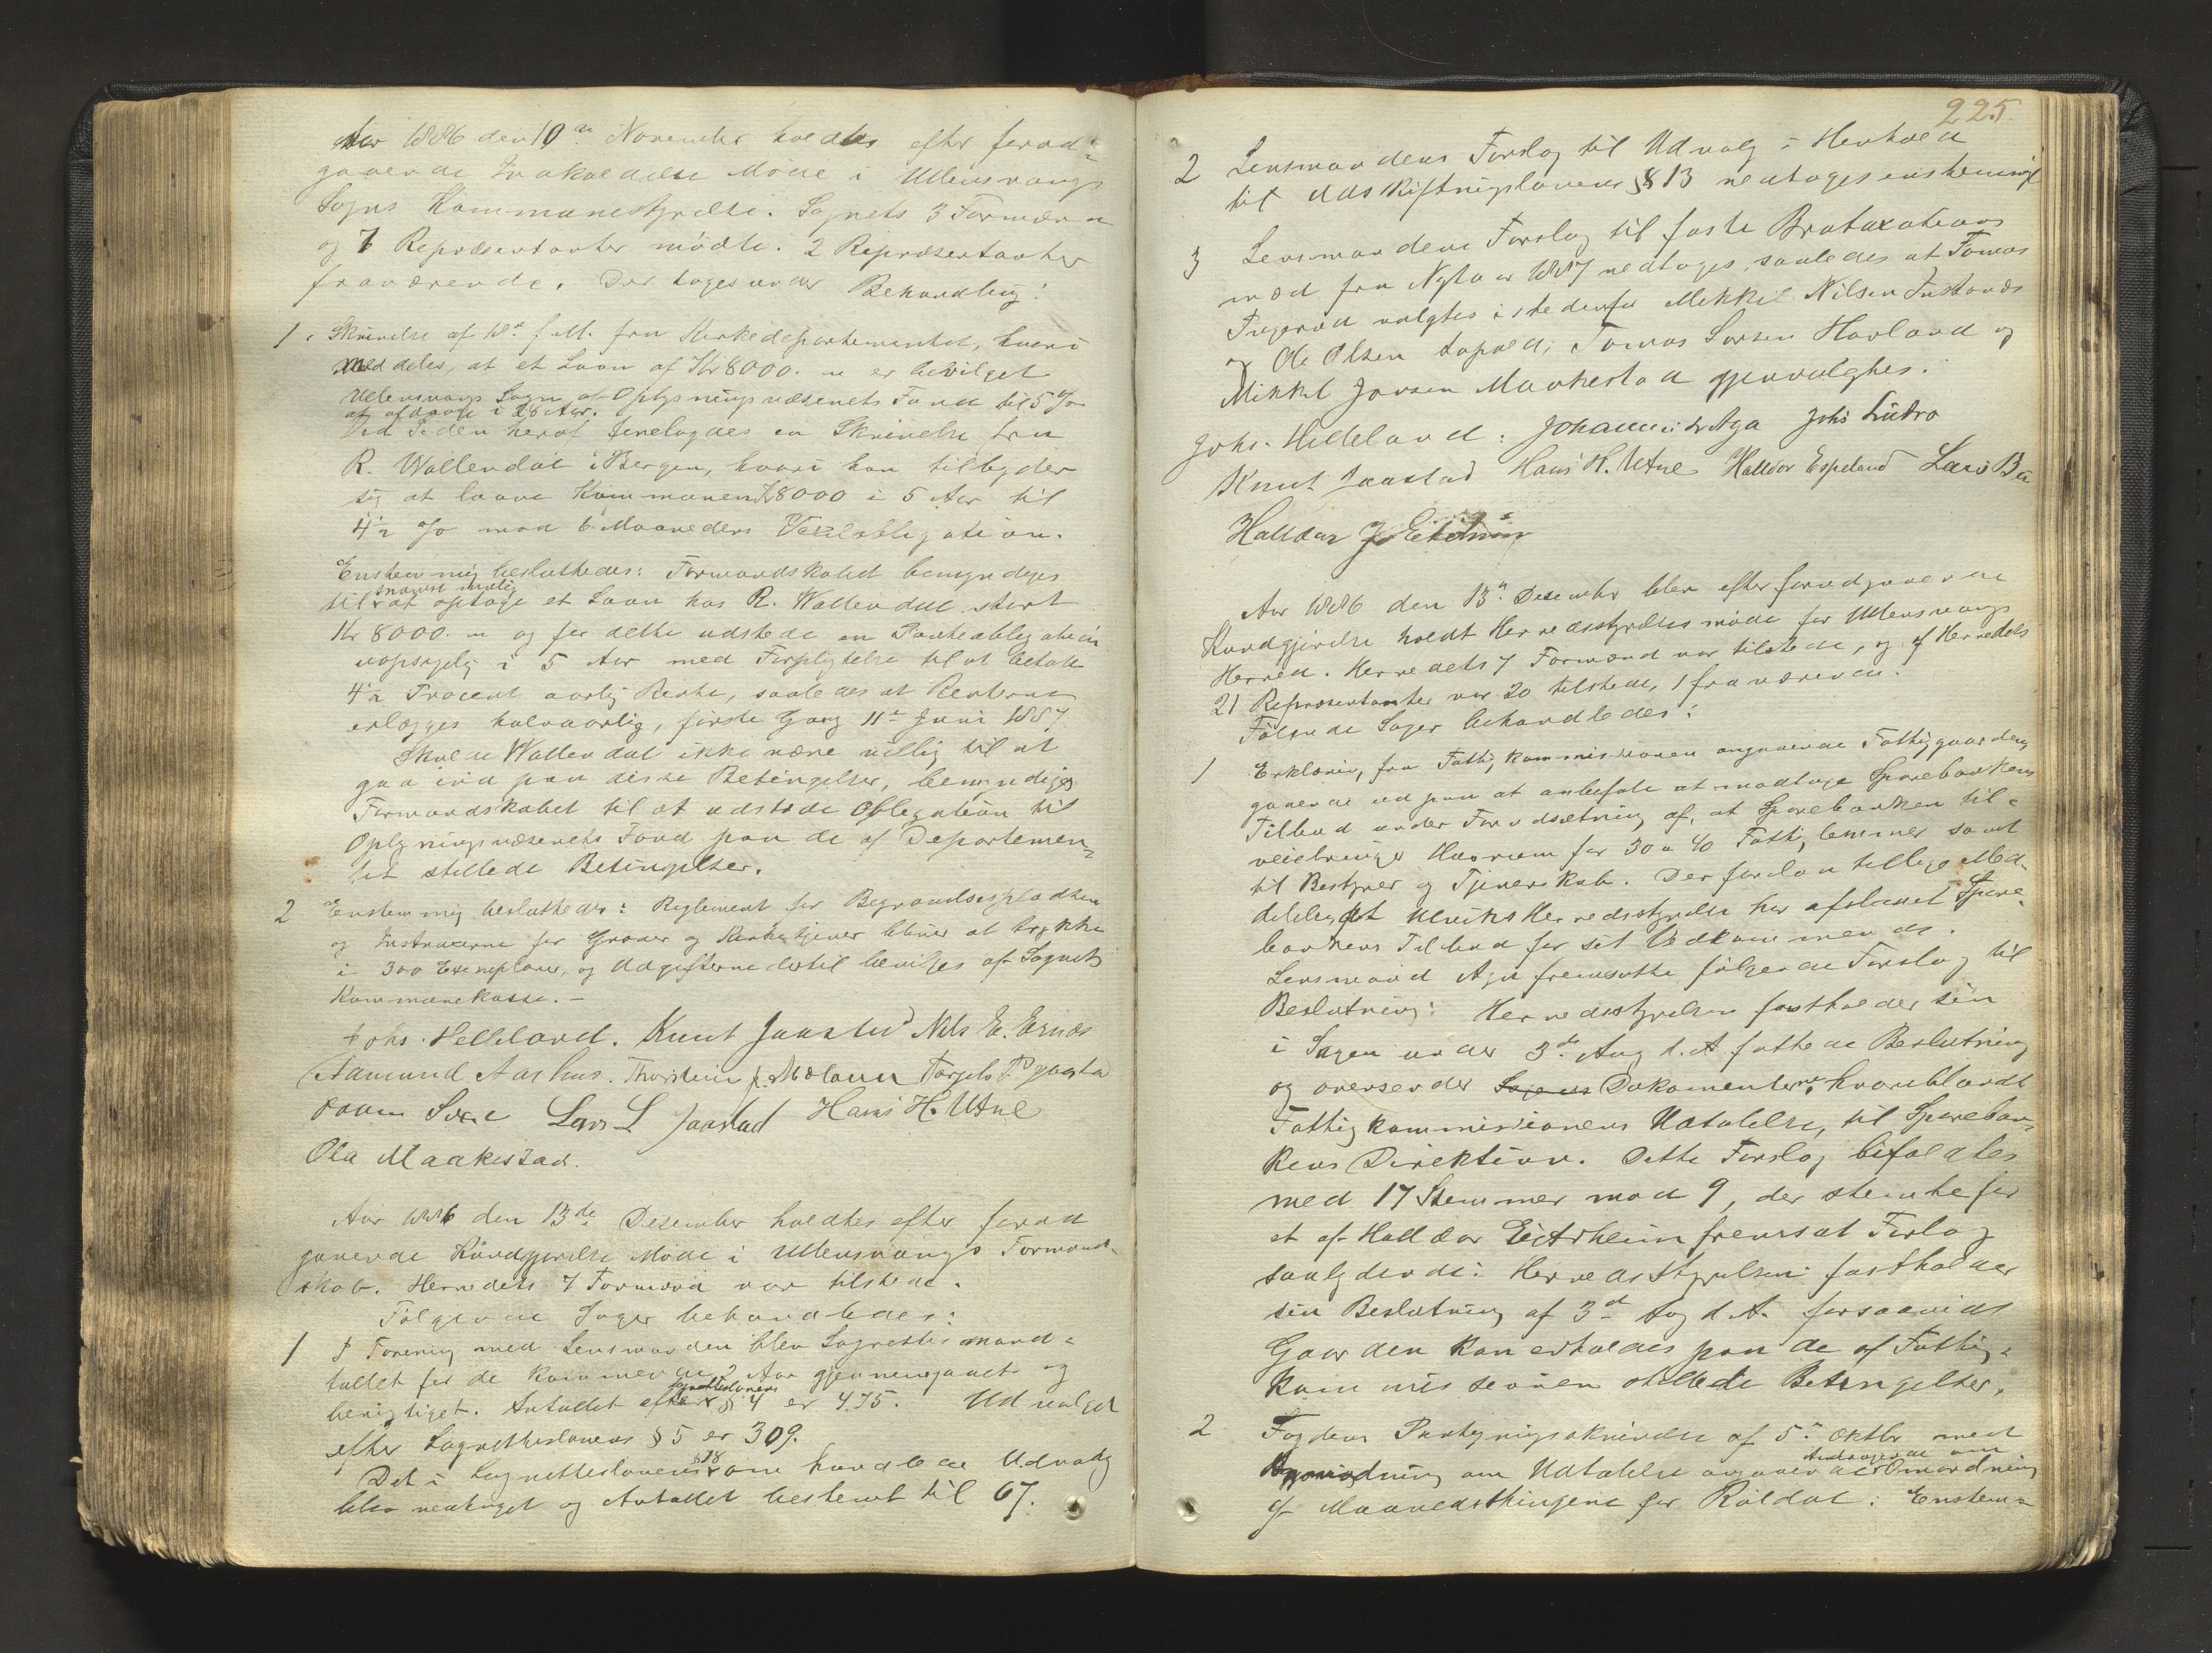 Aar 1886 den 10de November holdtes efter forud-
gaaende Indkaldelse Møde i Ullensvangs
Sogns Kommunestyrelse. Sognets 3 Formænd
og 7 Repræsentanter mødte. 2 Repræsentanter
fraværende. Der toges under Behandling:
1. Skrivelse af 18de f. M. fra Kirkedepartementet, hvori
meddeles, at et Laan af Kr 8000. er bevilget
Ullensvangs Sogn af Oplysningsvæsenets Fond til 5 %
at afdrage i 28 Aar.
Ved Siden heraf forelagdes en Skrivelse fra
R. Wallendal i Bergen, hvori han tilbyder
sig at laane Kommunen Kr 8000 i 5 Aar til
4½ % mod 6 Maaneders Vexelobligation.
Enstemmig besluttedes: Formandskabet bemyndiges
til snarest mulig at optage et Laan hos R. Wallendal stort
Kr 8000. og for dette udstede en Pantobligation
uopsigelig i 5 Aar med Forpligtelse til at betale
4½ Procent aarlig Rente, saaledes at Renterne
erlægges halvaarlig, første Gang 11te Juni 1887
Skulde Wallendal ikke være villig til at
gaa ind paa disse Betingelser, bemyndiges
Formandskabet til at udstede Obligation til
Oplysningsvæsenets Fond paa de af Departemen-
tet stillede Betingelser.
2 Enstemmig besluttedes: Reglement for Begravelsespladsen
og Instruxerne for Graver og Kirketjener bliver at trykke
i 300 Exemplarer, og Udgifterne dertil bevilges af Sognets
Kommunekasse. –
Johs. Helleland. Knut Jaastad Nils E. Ernæs
Aamund Aarhus. Thorstein J. Mælann Torgels P
Lars L Jaastad Hans H. Utne
Ola Maakestad.
Aar 1886 den 13de Desember holdtes efter forud
gaaende Kundgjørelse Møde i Ullensvangs Formand-
skab. Herredets 7 Formænd var tilstede.
Følgende Sager behandledes:
1 I Forening med Lensmanden blev Lagrettesmand-
tallet for de kommende 2 Aar gjennemgaaet og
berigtiget. Antallet efter Lagrettelovens § 4 er 475. Udvalget
efter Lagrettelovens § 5 er 309.
Det i Lagrettelovens § 18 omhandlede Udvalg
blev vedtaget og Antallet bestemt til 67.
225
2 Lensmandens Forslag til Udvalg i Henhold
til Udskiftningslovens § 13 vedtoges enstemmigt
3 Lensmandens Forslag til faste Brataxations
mænd fra Nytaar 1887 vedtoges, saaledes at Tomas
valgtes istedenfor Mikkel Nilsen
og Ole Olsen Tomas Larsen Hovland og
Mikkel Jonsen Maakestad gjenvalgtes.
Johs. Helleland. Johannes L Aga Johs Lutro
Knut Jaastad Hans H. Utne Halldor Espeland Lars Bu
Halldor J Eitrheim
Aar 1886 den 13de Desember blev efter forudgaaende
Kundgjørelse holdt Herredsstyrelsesmøde for Ullensvangs
Herred. Herredets 7 Formænd var tilstede, og af Herredets
21 Repræsentanter var 20 tilstede, 1 fraværende.
Følgende Sager behandledes:
1 Erklæring fra Fattigkommissionen angaaende Fattiggaarden
gaaende ud paa at anbefale at modtage Sparebankens
Tilbud under Forudsætning af, at Sparebanken til-
veiebringer Husrum for 30 a 40 Fattiglemmer samt
til Bestyrer og Tjenerskab. Der forelaa tillige Med-
delelse at Ulviks Herredsstyrelse har afslaaet Spare-
bankens Tilbud for sit Vedkommende.
Lensmand Aga fremsatte følgende Forslag til
Beslutning: Herredsstyrelsen fastholder sin
i Sagen under 3de Aug d. A fattede Beslutning
og oversender Sagens Dokumenterne, hvoriblandt
Fattigkommissionens Udtalelse, til Spareban-
kens Direktion. Dette Forslag bifaldtes
med 17 Stemmer mod 9, der stemte for
et af Halldor Eitrheim fremsat Forlag
saalydende: Herredsstyrelsen fastholder
sin Beslutning af 3de Aug d. A. forsaavidt
Gaarden kan erholdes paa de af Fattig-
kommissionen stillede Betingelser.
2 Fogdens Paategningsskrivelse af 5te Oktbr med
Anmodning om Udtalelse angaaende Andragende om Omordning
af Maanedsthingene for Røldal: Enstem-